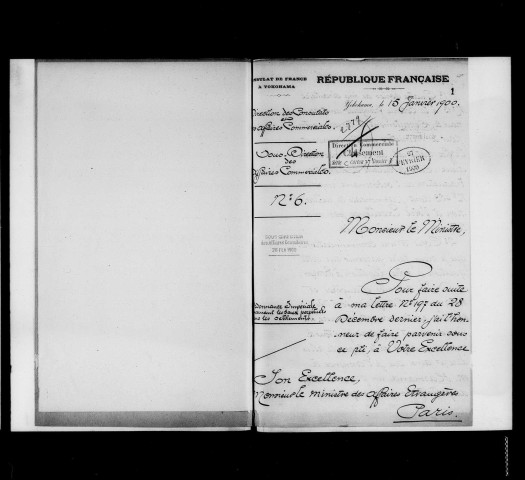 SULAT DE FRANCE
A YOKOHAMA
RÉPUBLIQUE FRANÇAISE
1
Yokohama, le 15 Janvier 1900.
Direction des Consulats
et
Affaires Commerciales.
Direction Commerciale
Classement
27
FEVRIER
1900
Sous-Direction
des
Affaires Commerciales.
N° 6.
Monsieur le Ministre,
Pour faire suite
à ma lettre N° 197 du 28
Décembre dernier, j'ai l'hon
neur de faire parvenir sous
ce pli, à Votre Excellence
Ordonnance Impériale
les baux perpétuels
les settlements.
Son Excellence,
Monsieur le Ministre des Affaires Etrangères
Paris.